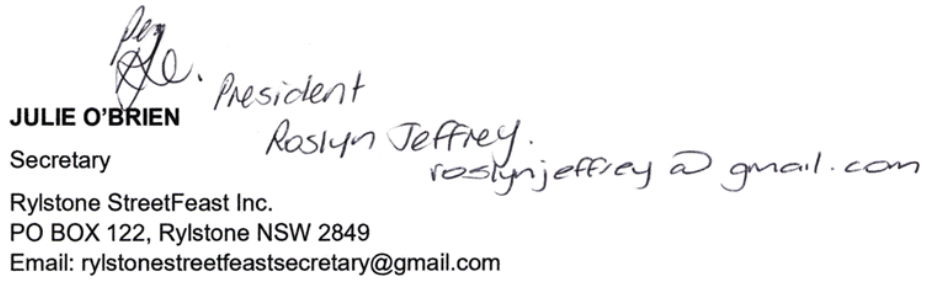 per
President
JULIE O'BRIEN
Roslyn Jeffrey.
roslynjeffrey @ gmail.com
Secretary
Rylstone StreetFeast Inc.
PO BOX 122, Rylstone NSW 2849
Email: rylstonestreetfeastsecretary@gmail.com